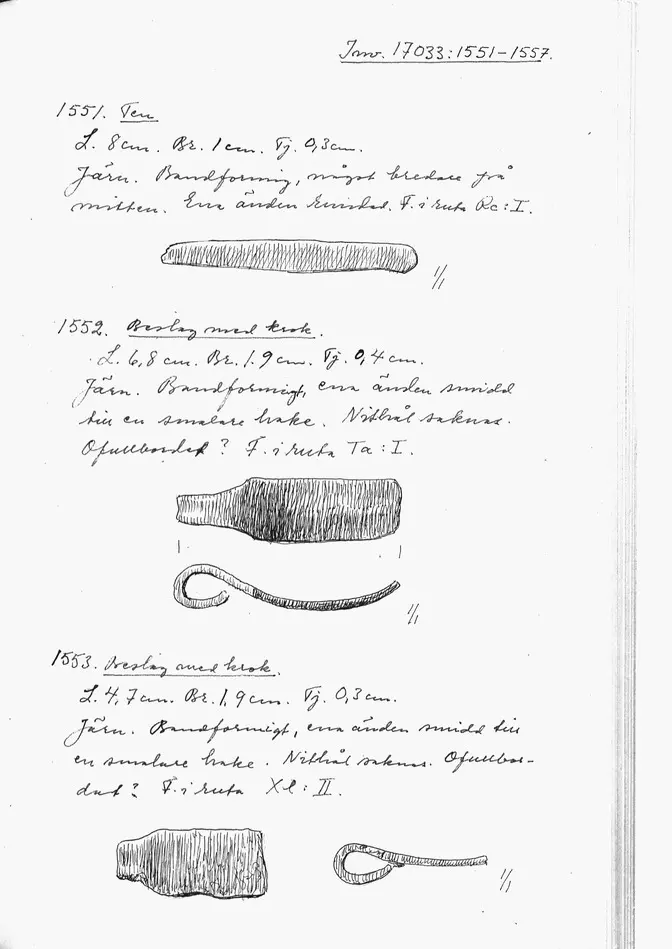 Inv. 17033:1551-1557.
1551. Ten
L. 8 cm. Br. 1 cm. Tj. 0,3 cm.
Järn. Bandformig, något bredare på
mitten. Ena änden rundad. F. i ruta Rc:I.
1/1
1552. Beslag med krok.
L. 6,8 cm. Br. 1.9 cm. Tj. 0,4 cm.
Järn. Bandformigt, ena änden smidd
till en smalare hake. Nithål saknas.
Ofullbordat? F. i ruta Ta:I.
1/1
1553. Beslag med krok.
L. 4,7 cm. Br. 1,9 cm. Tj. 0,3 cm.
Järn. Bandformigt, ena änden smidd till
en smalare hake. Nithål saknas. Ofullbor-
dat? F. i ruta Xl:II.
1/1